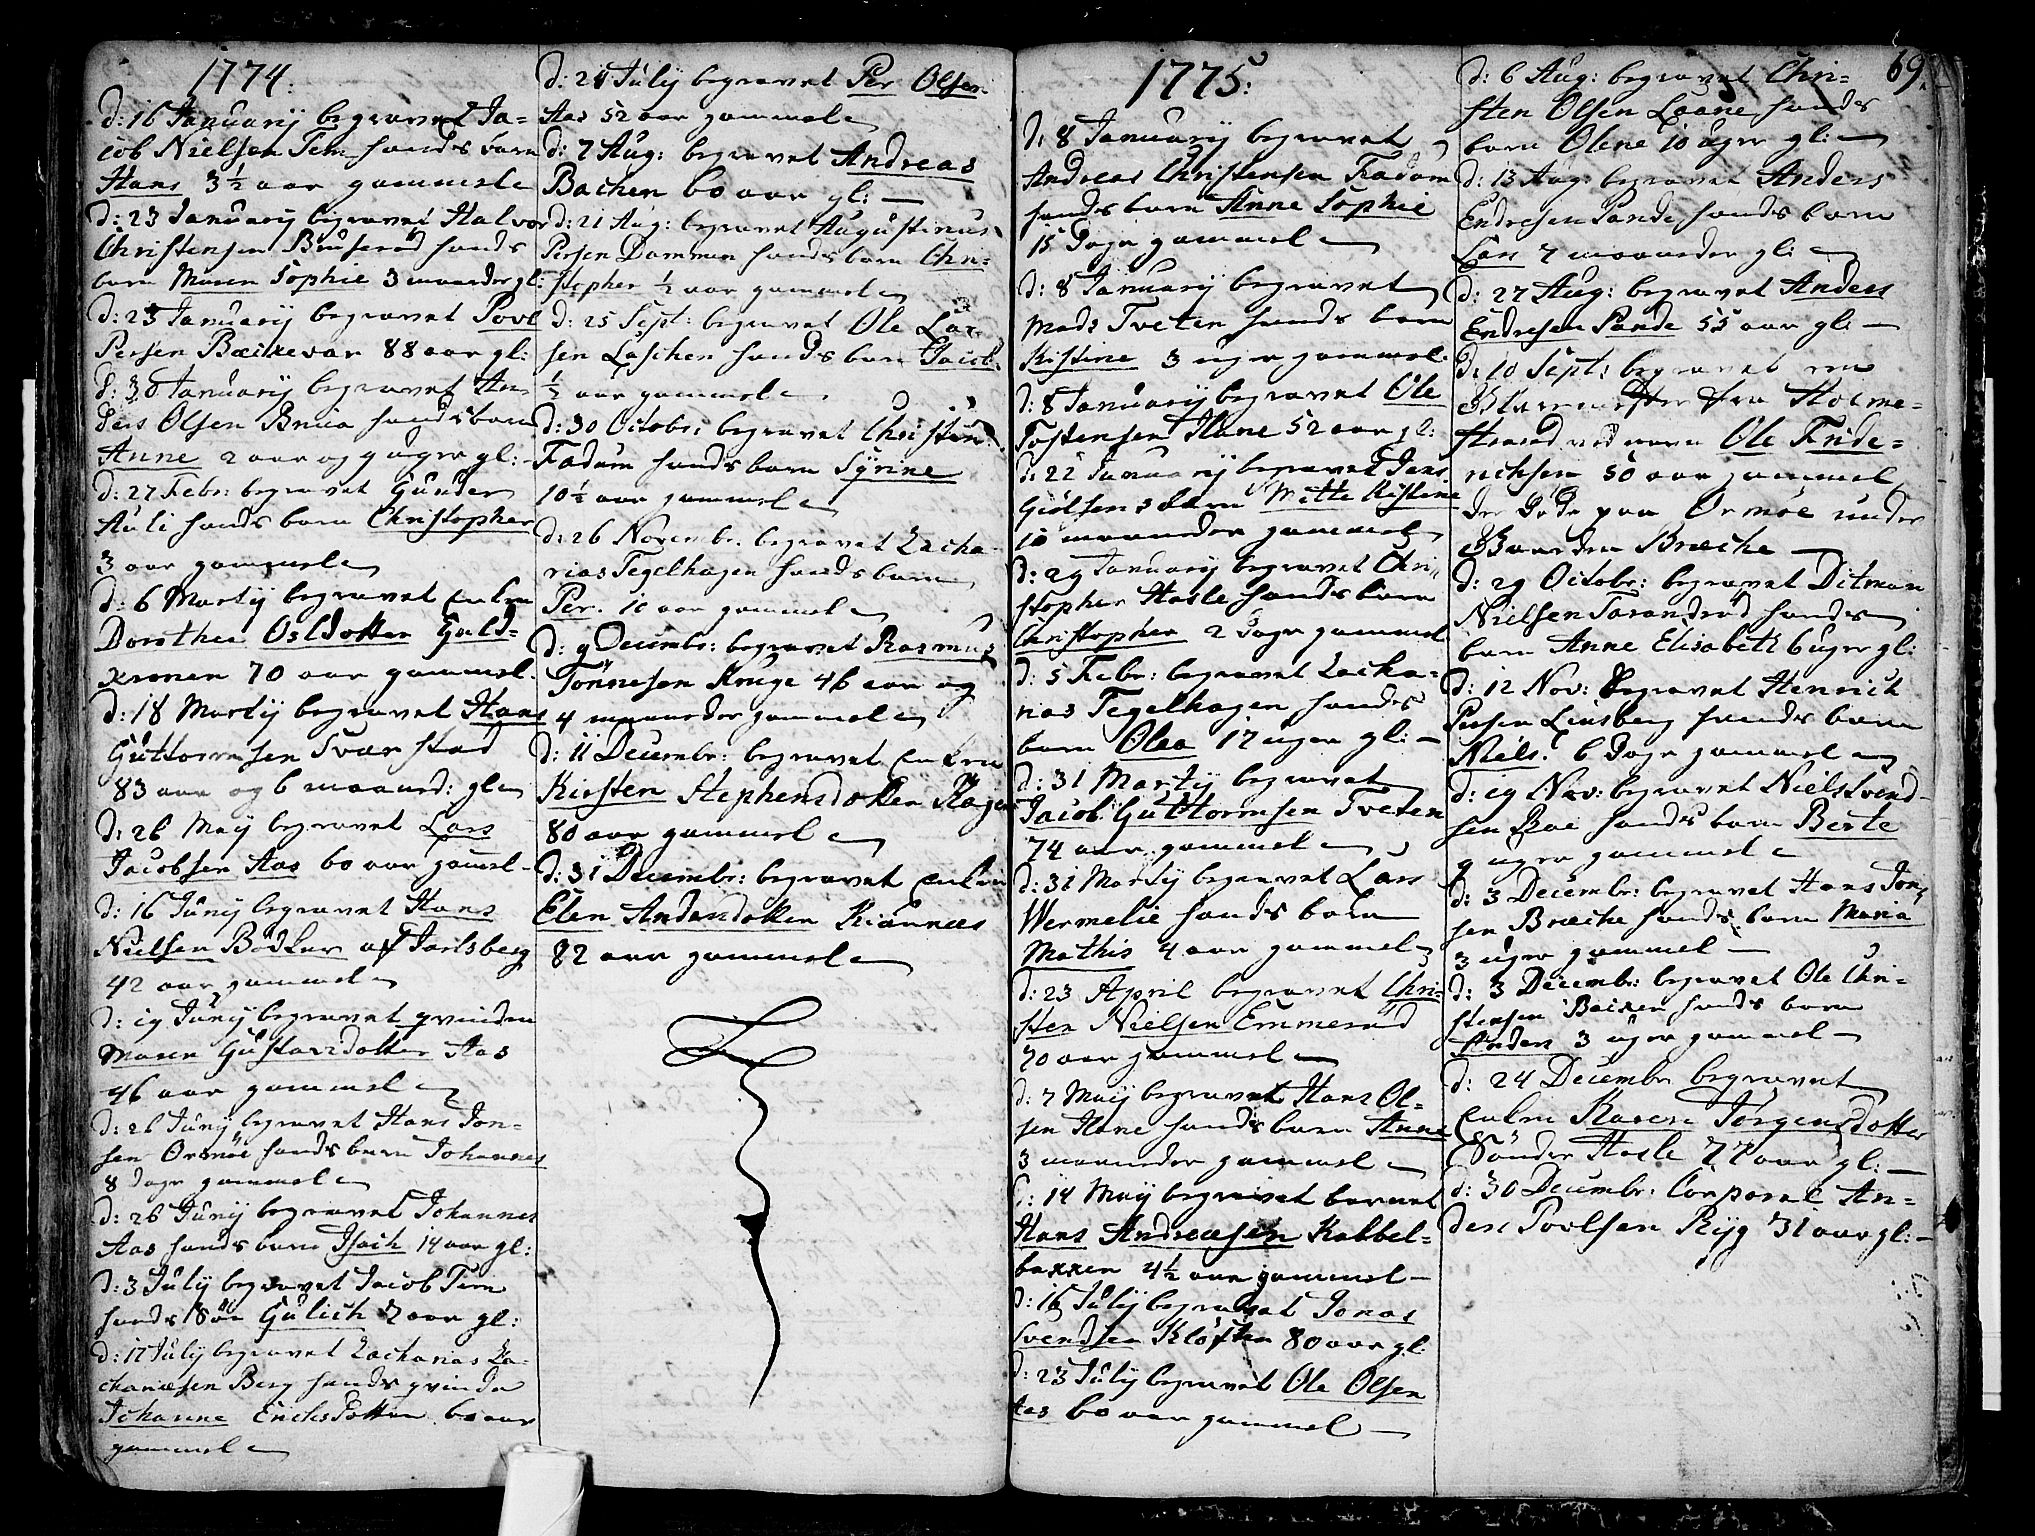 1774.
d: 16 Januarij begravet Ja-
cob Nielsen Tem hands barn
Hans 3½ aar gammel
d: 23 Januarij begravet Halvor
Christensen Bruserød hands
barn Maren Sophie 3 maander gl:
d: 23 Januarij begravet Povl
Persen Bæckevar 88 aar gl:
d: 30 Januarij begravet An-
ders Olsen Brua hands barn
Anne 2 aar og 9 uger gl:
d: 27 Febr: begravet Gunder
Auli hands barn Christopher
3 aar gammel
d: 6 Martij begravet enken
Dorothea Osldotter Guld-
kronen 70 aar gammel.
d: 18 Martij begravet Hans
Guttormsen Svarstad
83 aar og 6 maand: gl
d: 26 Maij begravet Lars
Jacobsen Aas 60 aar gamel
d: 16 Junij begravet Hans
Nielsen Bødker af Jarlsberg
42 aar gammel
d: 19 Junij begravet qvinden
Maren Gustavsdotter Aas
46 aar gammel
d: 26 Junij begravet Hans Jon-
sen Ormöe hands barn Johannes
8 dage gammel
d: 26 Junij begravet Johannes
Aas hands barn Isach 14 aar gl:
d: 3 Julij begravet Jacob Tem
hands Søn Gulich 2 aar gl:
d: 17 Julij begravet Zacharias Za-
chariæsen Berg hands qvinde
Johanne Erichsdotter 60 aar
gammel
d: 24 Julij begravet Per Olsen
Aas 52 aar gammel
d: 7 Aug: begravet Andreas
Bachen 60 aar gl:
d: 21 Aug: begravet Augustinus
Persen Dammen hands barn Chri-
stopher ½ aar gammel
d: 25 Sept: begravet Ole Lar-
sen Laschen hands barn Jacob
½ aar gammel
d: 30 Octobr: begravet Christen
Fadum hands barn Syrine
10½ aar gammel
d: 26 Novembr: begravet Zacha-
rias Tegelhagen hands barn
Per. 10 aar gammel
d: 9 Decembr: begravet Rasmus
Tönnesen Kruge 46 aar og
4 maaneder gammel
d: 11 Decembr: begravet enken
Kirsten Stephensdotter Hagen
80 aar gammel
d: 31 Decembr: begravet enken
Elen Andersdotter Kiønnæs
82 aar gammel
1775.
d: 8 Januarij begravet
Andreas Christensen Fadum
hands barn Anne Sophie
15 Dage gammel
d: 8 Januarij begravet
Mads Tveten hands barn
Kistine 3 uger gammel.
d: 8 Januarij begravet Ole
Tostensen Hane 52 aar gl:
d: 22 Januarij begravet Jens
Mette Kistine
10 maaneder gammel
d: 29 Januarij begravet Chri-
stopher Hasle hands barn
Christopher 2 Dage gammel
d: 5 Febr: begravet Zacha-
rias Tegelhagen hands
barn Olea 17 uger gl:
d: 31 Martij begravet
Jacob Guttormsen Tveten
74 aar gammel
d: 31 Martij begravet Lars
Wermelie hands barn
Mathis 4 aar gammel
d: 23 April begravet Chri-
sten Nielsen Emmerød
70 aar gammel
d: 7 Maij begravet Hans Ol-
sen Hane hands barn Anne
3 maaneder gammel
d: 14 Maij begravet barnet
Hans Andreæsen Kabbel-
bakken 4½ aar gammel
d: 16 Julij begravet Jonas
Svendsen Kløften 80 aar gl:
d: 23 Julij begravet Ole Olsen
Aas 60 aar gammel
69.
d: 6 Aug: begravet Chri-
sten Olsen Laane hands
barn Olene 10 uger gl:
d: 13 Aug: begravet Anders
Endresen Sande hands barn
Lars 7 maaneder gl:
d: 27 Aug: begravet Anders
Endresen Sande 55 aar gl:
d: 10 Sept: begravet en
fra Holme-
strand ved navn Ole Fride-
richsen 50 aar gammel
der døde paa Ormöe under
Gaarden Bræche
d: 29 Octobr: begravet Ditman
Nielsen Tarandrød hands
barn Anne Elisabeth 6 uger gl:
d: 12 Nov: begravet Henrich
Persen Linsberg hands barn
Niels. 6 Dage gammel
d: 19 Nov: begravet Niels Svend-
sen Roe hands barn Berte
9 uger gammel
d: 3 Decembr: begravet Hans Jon-
sen Bræche hands barn Maria
3 uger gammel
d: 3 Decembr: begravet Ole Chri-
stensen Beiken hands barn
Anders 3 uger gammel
d: 24 Decembr begravet
enken Karen Jørgensdotter
Sönder Hasle 77 aar gl:
d: 30 Decembr: Corporal An-
ders Povlsen Ryg 31 aar gl: